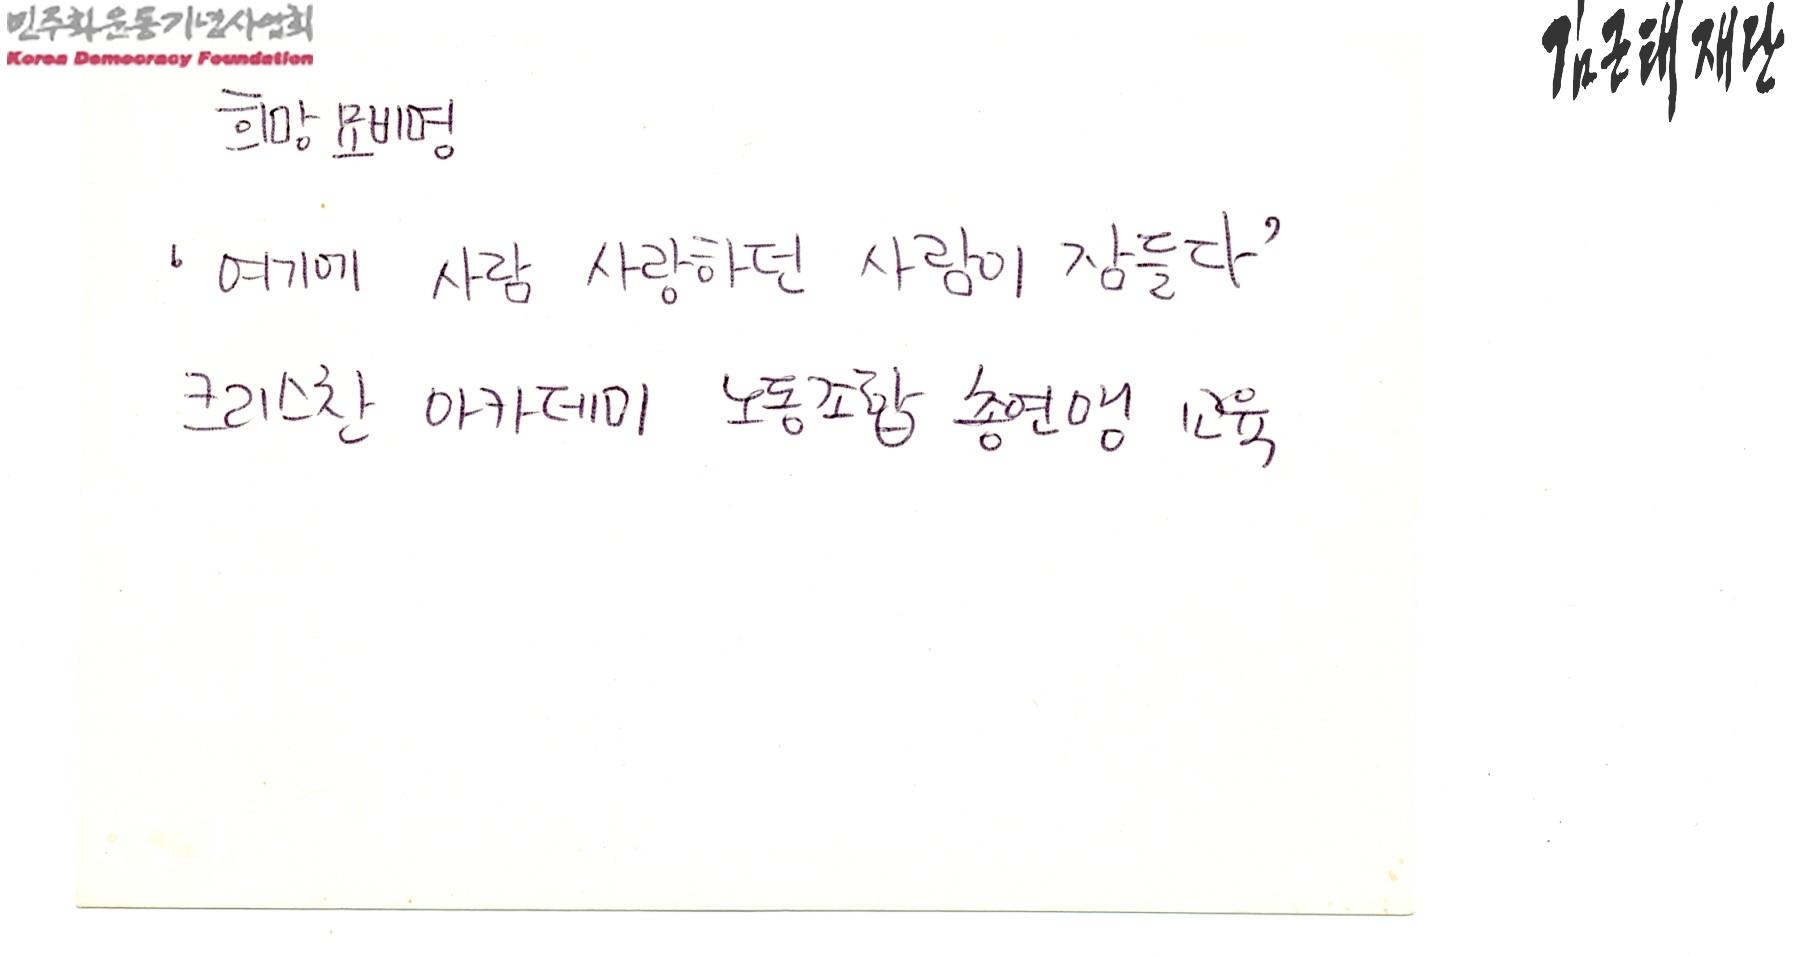 민주화운동기념사업회
Korea Democracy Foundation
김근태재단
희망묘비명
‘여기에 사람 사랑하던 사람이 잠들다’
크리스찬 아카데미 노동조합 총연맹 교육